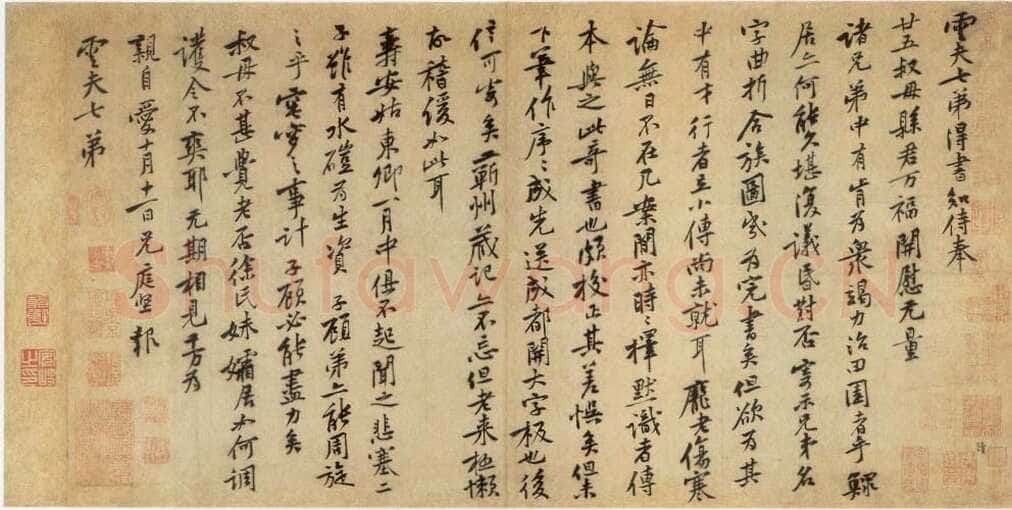 雲夫七弟得書知侍奉
廿五叔母縣君万福開慰无量
諸兄弟中有肯為衆竭力治田園者乎鰥
居亦何能久堪復議昏對否寄示兄弟名
字曲折合族圖幾為完書矣但欲為其
中有才行者立小傳尚未就耳龐老傷寒
論無日不在几案間亦時〻擇默識者傳
本與之此奇書也頗校正其差悞矣但未
下筆作序〻成先送成都開大字板也後
信可寄矣蘄州藏記亦不忘但老來極懶
故稽緩如此耳
壽安姑東卿一月中俱不起聞之悲塞二
子雖有水磑為生資子顧弟亦能周旋
之乎窀穸之事計子顧必能盡力矣
叔母不甚覺老否徐氏妹孀居如何調
護令不爽耶无期相見千万為
親自愛十月十一日兄庭堅報
雲夫七弟
Shufawang.CN